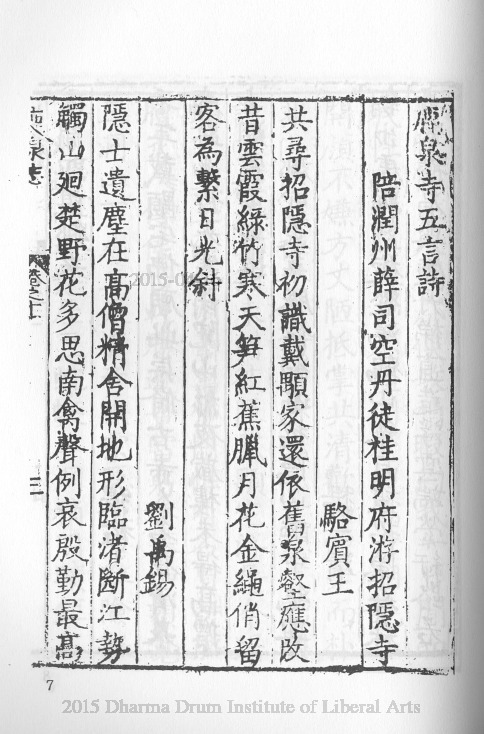 泉寺五言詩
陪潤州薛司空丹徒桂明府游招隱寺
駱賓王
共尋招隱寺初識戴顒家還依舊泉壑應改
昔雲霞綠竹寒天笋紅蕉臘月花金繩倘留
客為繫日光斜
劉禹錫
隱士遺塵在高僧精舍開地形臨渚斷江勢
觸山廻楚野花多思南禽聲例哀殷勤最高
7
2015 Dharma Drum Institute of Liberal Arts